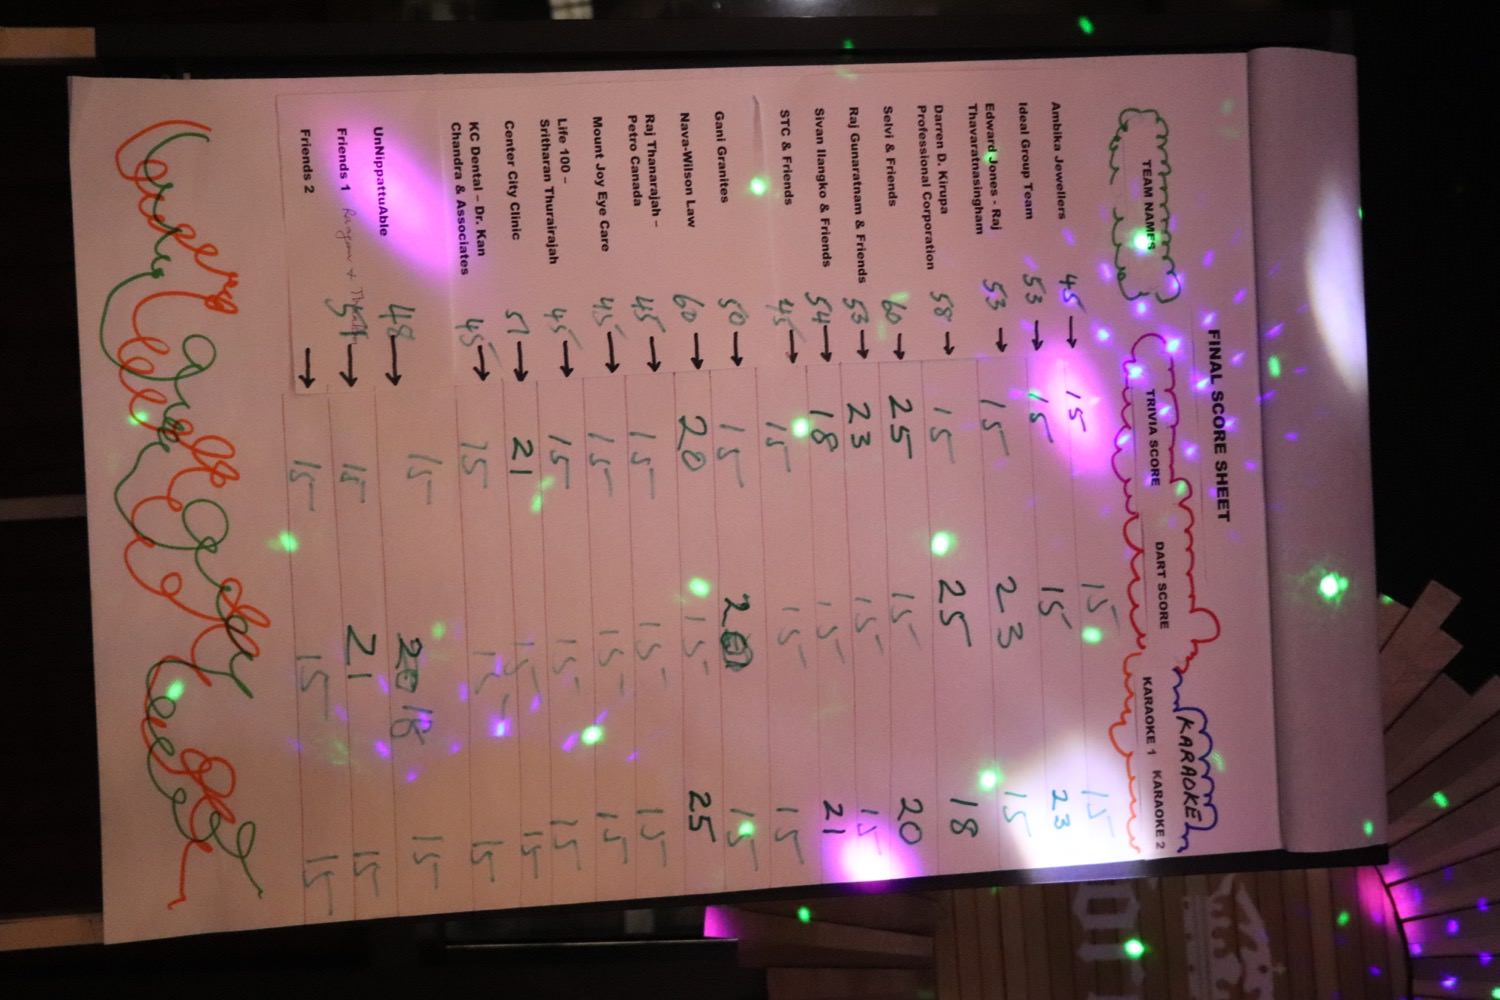 FINAL SCORE SHEET
TEAM NAMES TRIVIA SCORE DART SCORE KARAOKE
KARAOKE 1 KARAOKE 2
Ambika Jewellers 45 → 15 15 15
Ideal Group Team 53 → 15 15 23
Edward Jones - Raj
Thavaratnasingham 53 → 15 23 15
Darren D. Kirupa
Professional Corporation 58 → 15 25 18
Selvi & Friends 60 → 25 15 20
Raj Gunaratnam & Friends 53 → 23 15 15
Sivan Ilangko & Friends 54 → 18 15 21
STC & Friends 45 → 15 15 15
Gani Granites 50 → 15 20 15
Nava-Wilson Law 60 → 20 15 25
Raj Thanarajah –
Petro Canada 45 → 15 15 15
Mount Joy Eye Care 45 → 15 15 15
Life 100 –
Sritharan Thurairajah 45 → 15 15 15
Center City Clinic 51 → 21 15 15
KC Dental – Dr. Kan
Chandra & Associates 45 → 15 15 15
UnNippattuAble 48 → 15 18 15
Friends 1 → 15 21 15
Friends 2 → 15 15 15